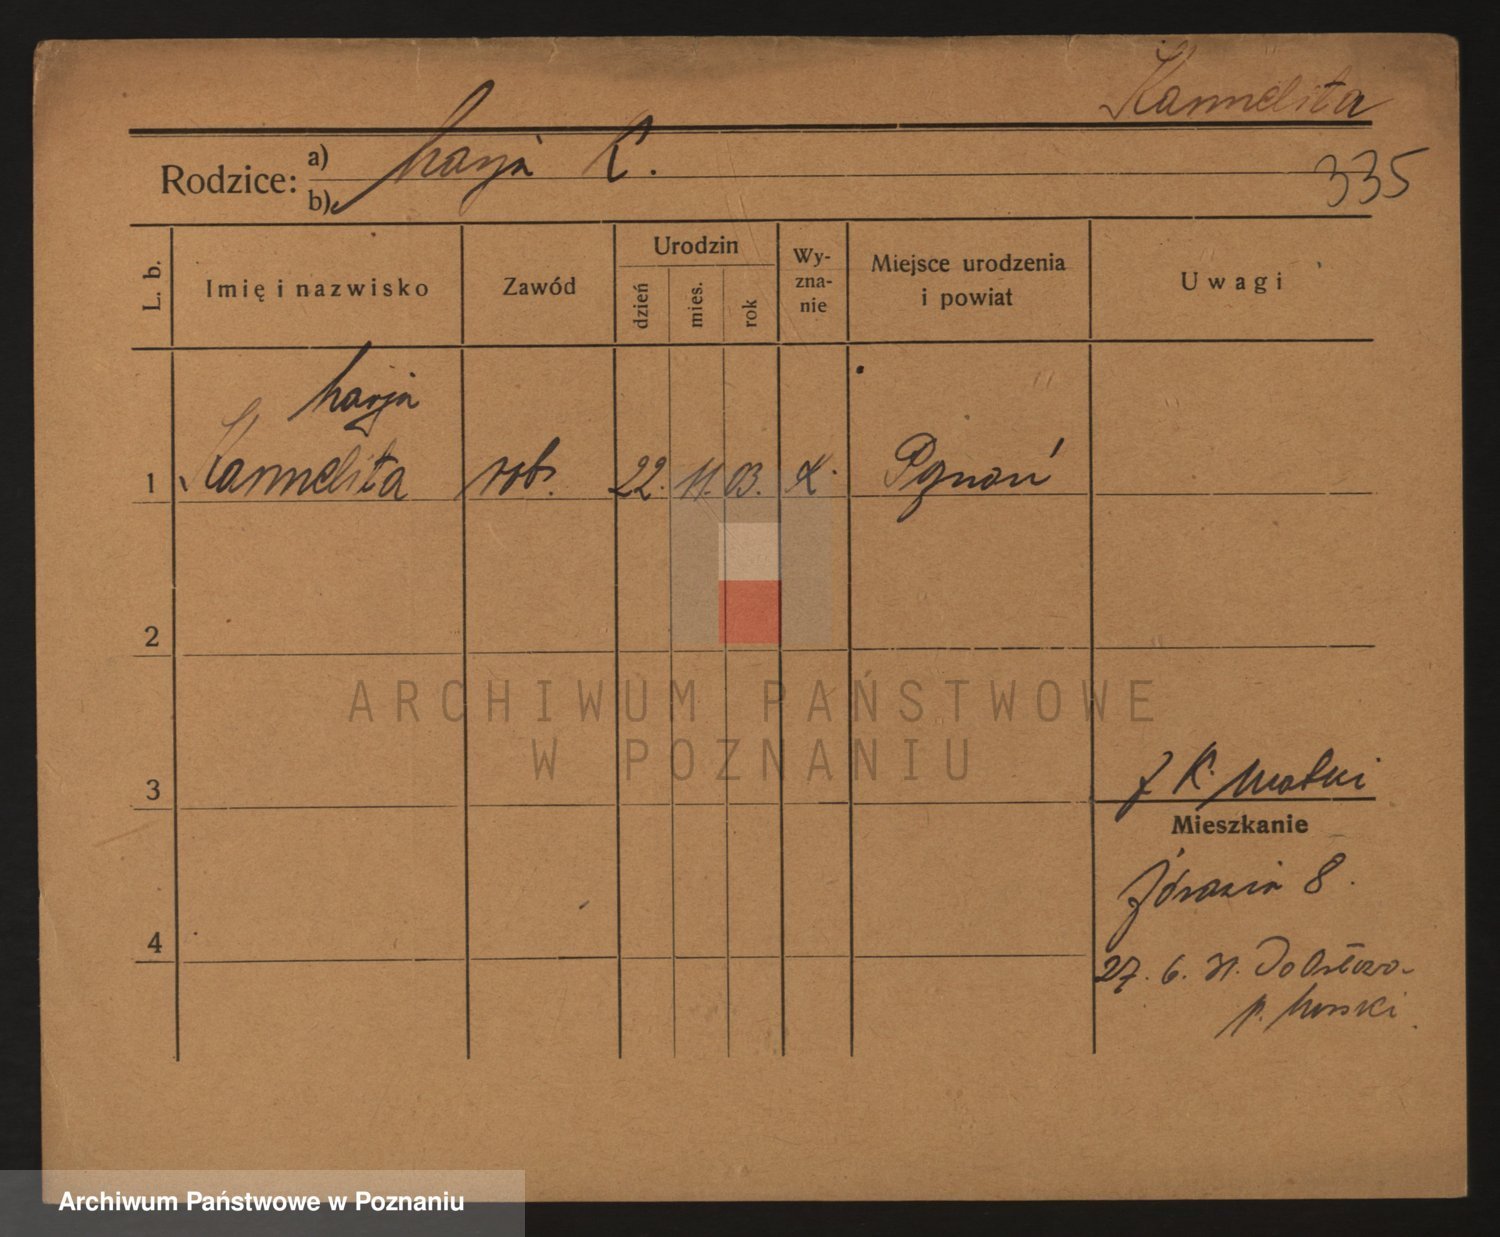 Kannelita
335
Rodzice: a) Marja K.
b)
L. b.
Imię i nazwisko
Zawód
Urodzin
dzień
mies.
rok
Wy-
zna-
nie
Miejsce urodzenia
i powiat
Uwagi
Marja
1 Kannelita rob. 22. 11. 03. K. Poznań
2
ARCHIWUM PAŃSTWOWE
W POZNANIU
3
K. Matki
Mieszkanie
Żórawia 8.
4
27. 6. 31. Do
p. Morski
Archiwum Państwowe w Poznaniu